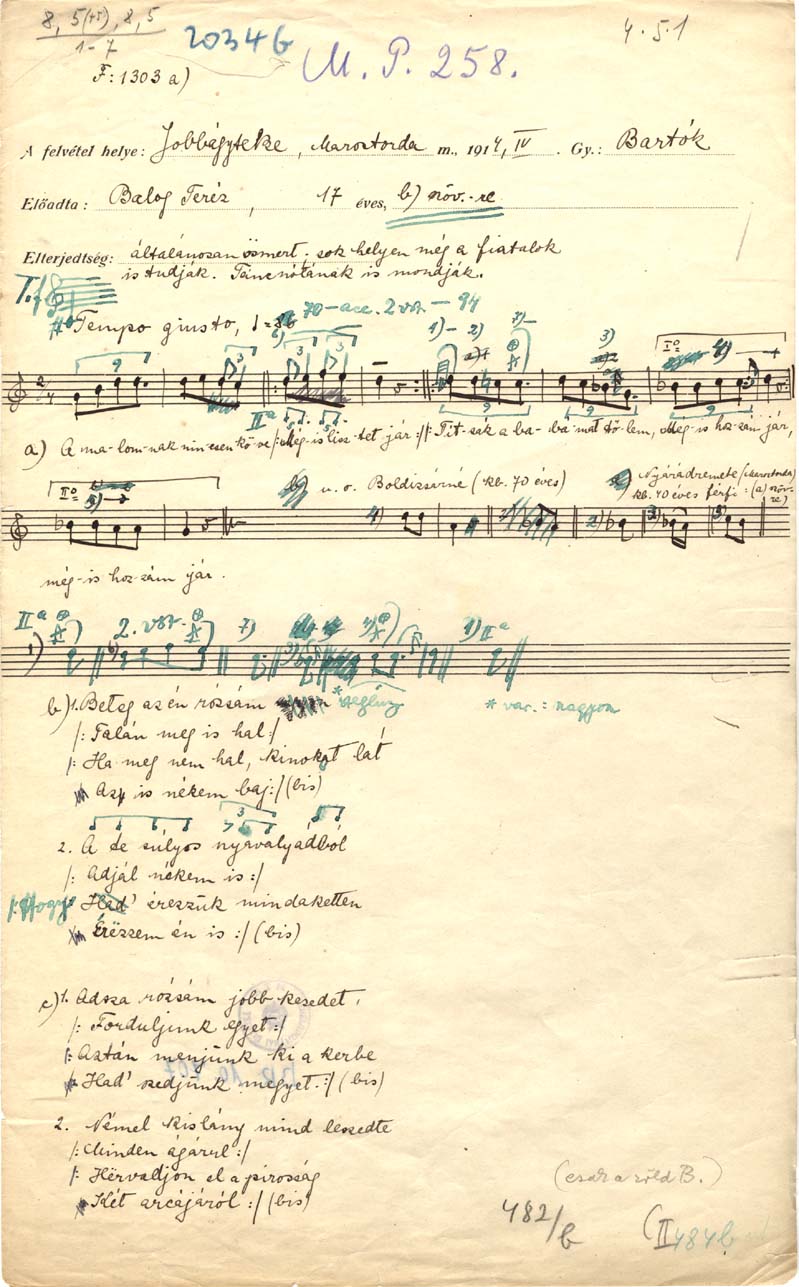 8, 5(+5), 8, 5
1-7
20346
4.5.1
F: 1303 a)
M. P. 258.
A felvétel helye: Jobbágyteke, Marostorda m., 1914, IV. Gy.: Bartók
Előadta: Balog Teréz, 17 éves, b) növ.-re
Elterjedtség: általánosan ösmert; sok helyen még a fiatalok
is tudják. Táncnótának is mondják.
T. f
70-acc. 2 vsz - 94
Tempo giusto,
1) 2) 7)
3)
Iº
IIª
a) A ma-lom-nak nin-csen kö-ve /: Még-is lisz-tet jár :/ /: Tit-sak a ba-bá-mat tő-lem, Még-is hoz-zám jár,
IIº
u. o. Boldizsárné (kb. 70 éves)
Nyárádremete (Marostorda)
kb. 40 éves férfi: (a) növ-re)
4) 2) 3)
még-is hoz-zám jár.
IIª 2. vsz. 7)
1) IIª
b) 1. Beteg az én rózsám végling
* var.: nagyon
/: Talán meg is hal :/
/: Ha meg nem hal, kinokat lát
Az is nékem baj :/ (bis)
2. A te súlyos nyavalyádból
/: Adjál nékem is :/
/: Hogy Had' érezzük mindaketten
Érëzzem én is :/ (bis)
c) 1. Adsza rózsám jobb kezedet,
/: Forduljunk egyet :/
/: Aztán menjünk ki a kerbe
Had' szedjünk megyet :/ (bis)
2. Némel kislány mind leszedte
/: Minden ágárul :/
/: Hërvadjon el a pirosság
Két arcájáról :/ (bis)
(csak a zöld B.)
482/b
(II 484b